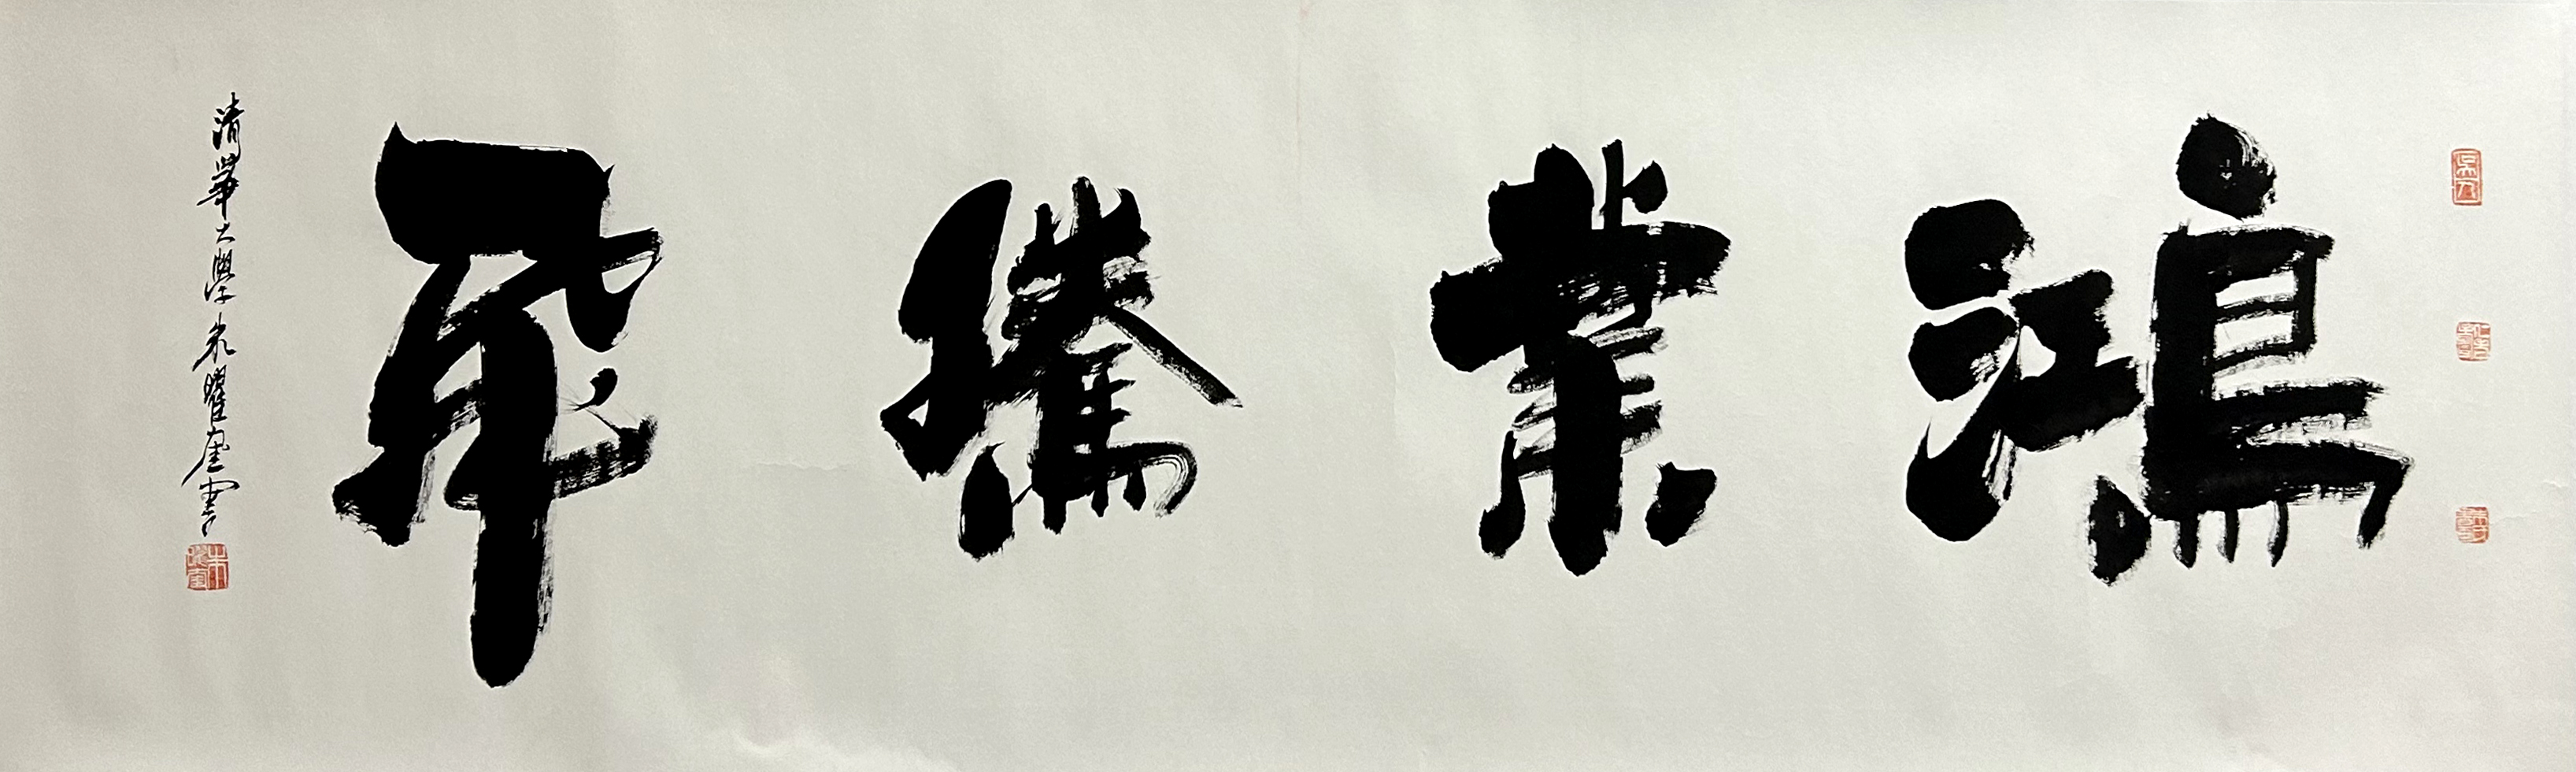 鴻業騰飛
清華大學 朱曜奎書